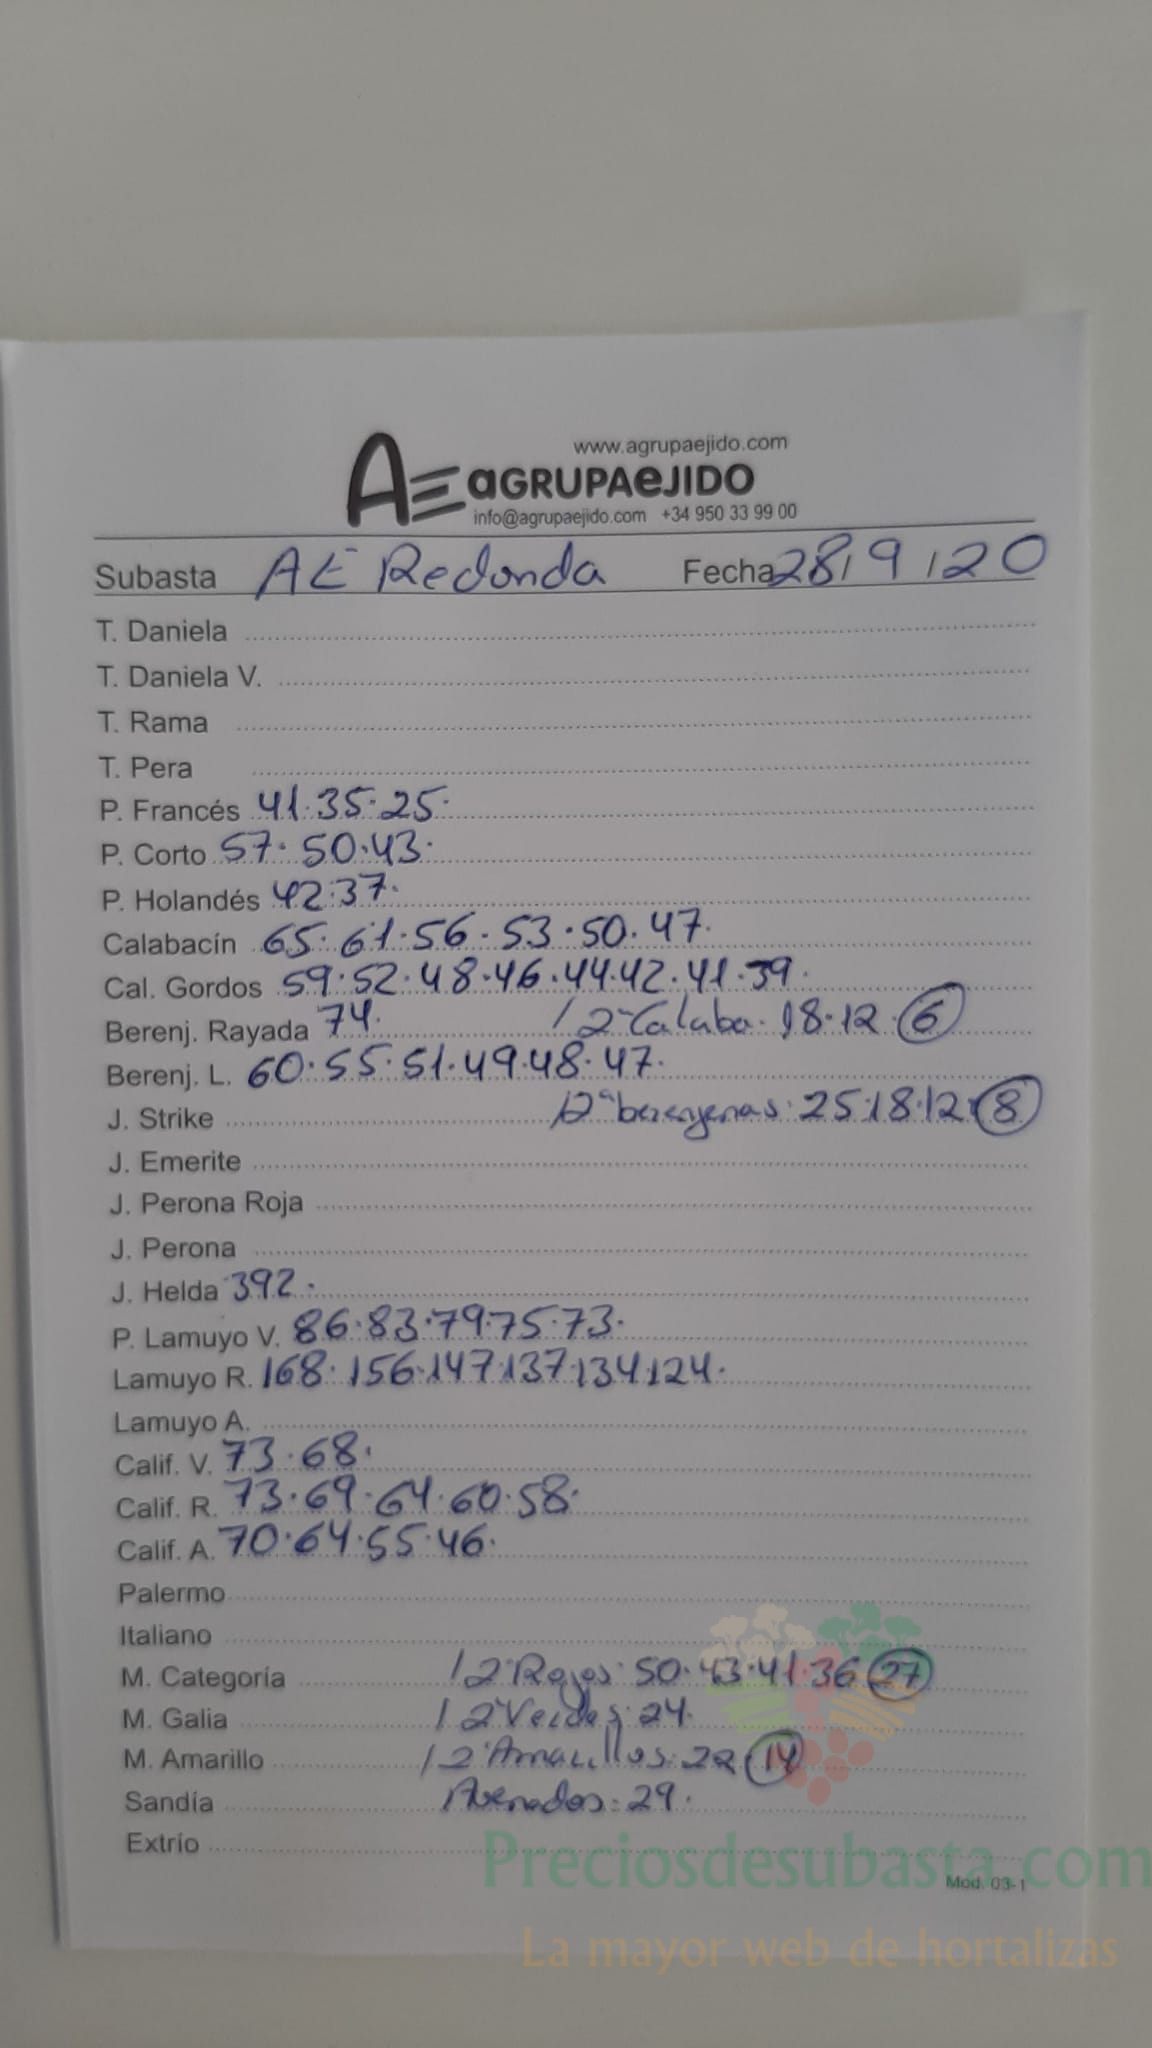 www.agrupaejido.com
AE aGRUPAeJIDO
info@agrupaejido.com +34 950 33 99 00
Subasta AE Redonda Fecha 28/9/20
T. Daniela
T. Daniela V.
T. Rama
T. Pera
P. Francés 41·35·25·
P. Corto 57·50·43·
P. Holandés 42·37·
Calabacín 65·61·56·53·50·47·
Cal. Gordos 59·52·48·46·44·42·41·39·
Berenj. Rayada 74· / 2ª Calaba· 18·12·6
Berenj. L. 60·55·51·49·48·47·
J. Strike / 2ª berenjenas· 25·18·12·8
J. Emerite
J. Perona Roja
J. Perona
J. Helda 392·
P. Lamuyo V. 86·83·79·75·73·
Lamuyo R. 168·156·147·137·134·124·
Lamuyo A.
Calif. V. 73·68·
Calif. R. 73·69·64·60·58·
Calif. A. 70·64·55·46·
Palermo
Italiano
M. Categoría / 2ª Rojos· 50·43·41·36 27
M. Galia / 2ª Verdes· 24·
M. Amarillo / 2ª Amarillos· 22 14
Sandía Asenados· 29·
Extrío
Preciosdesubasta.com
Mod. 03-1
La mayor web de hortalizas